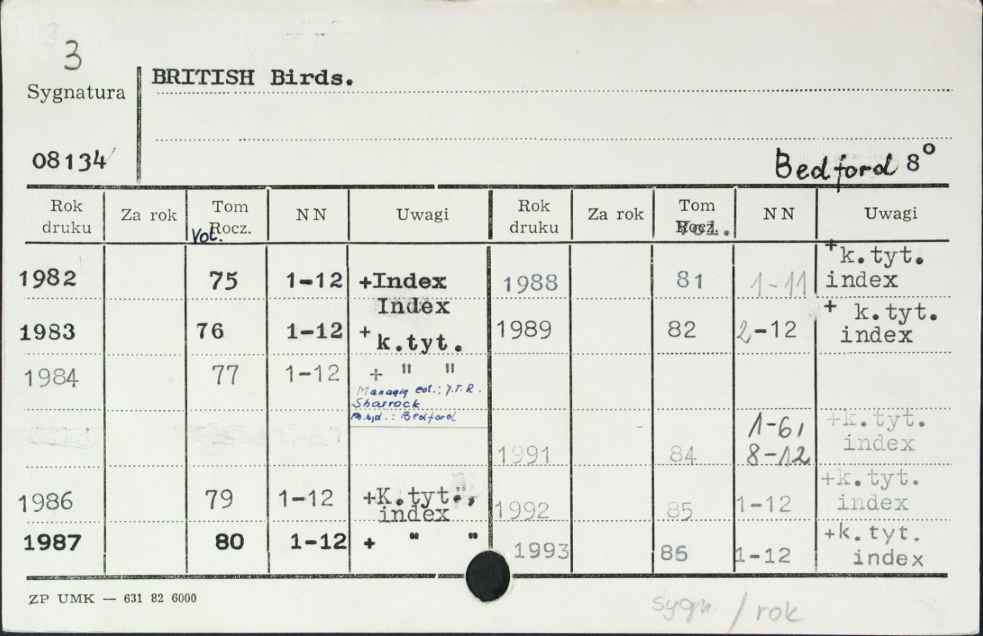 3
Sygnatura
BRITISH Birds.
08134
Bedford 8°
Rok druku Za rok Tom Rocz. Vol. NN Uwagi Rok druku Za rok Tom Vol. NN Uwagi
1982 75 1-12 +Index
1983 76 1-12 Index + k.tyt.
1984 77 1-12 + " "
Managing ed.: J.T.R.
Sharrock
: Bedford
1986 79 1-12 +K.tyt., index
1987 80 1-12 + " "
1988 81 1-11 +k.tyt. index
1989 82 2-12 + k.tyt. index
1991 84 1-6, 8-12 +k.tyt. index
1992 85 1-12 +k.tyt. index
1993 86 1-12 +k.tyt. index
ZP UMK — 631 82 6000
sygn. / rok